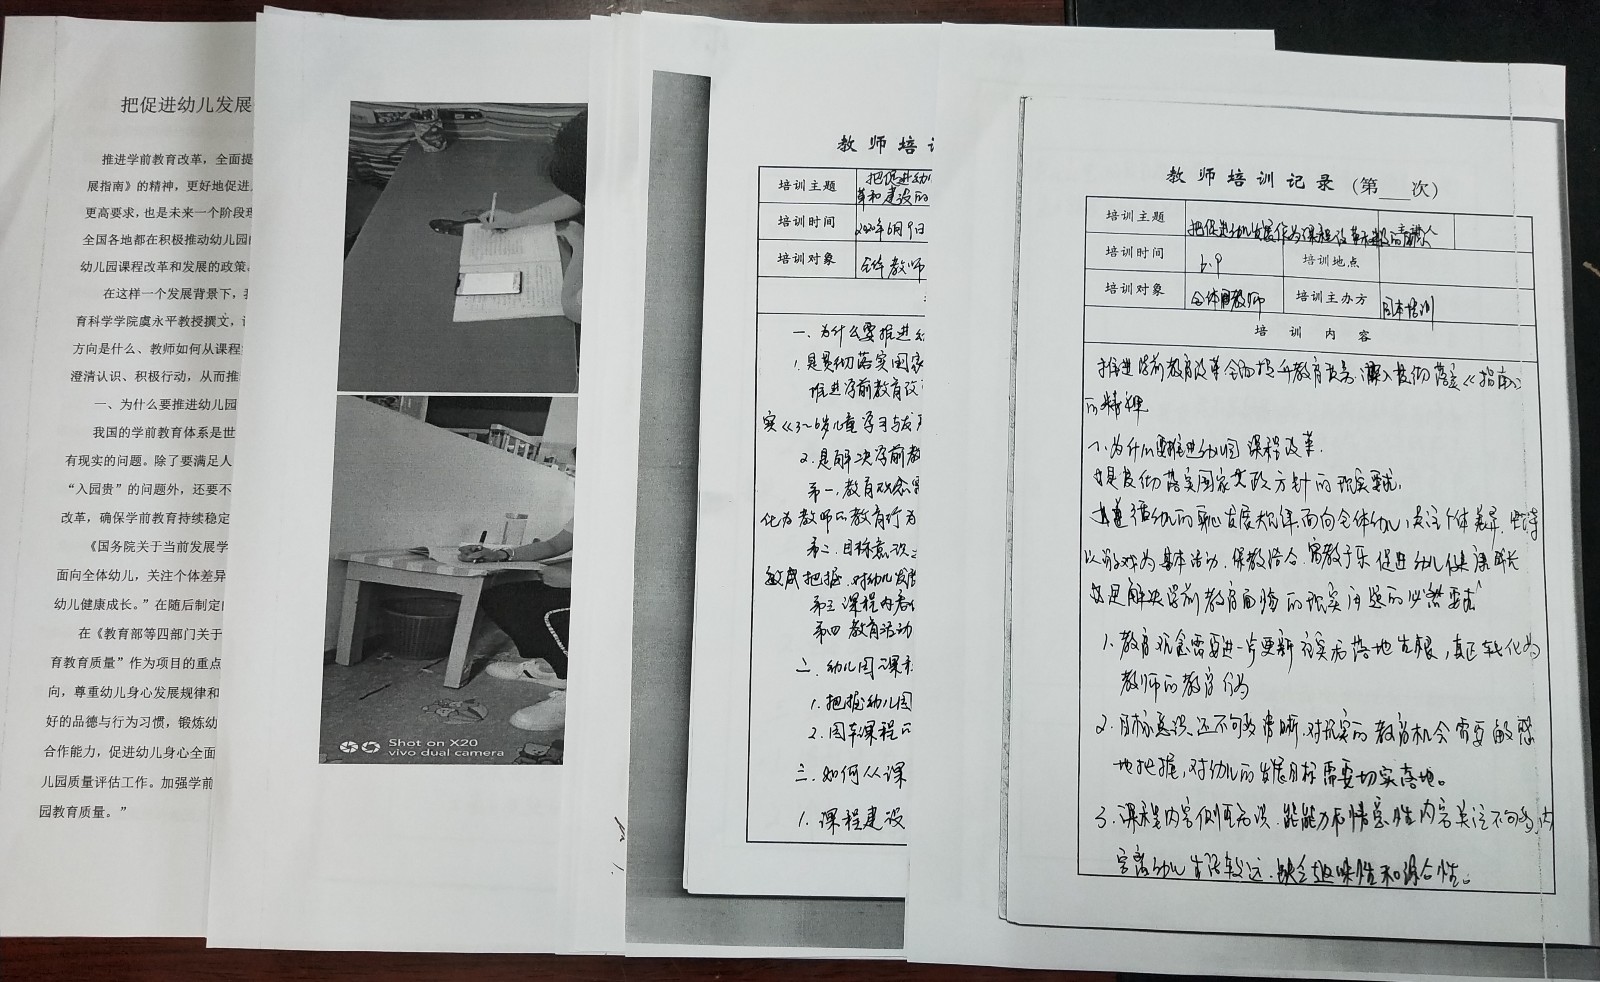 把促进幼儿发展
推进学前教育改革，全面提
展指南》的精神，更好地促进
更高要求，也是未来一个阶段
全国各地都在积极推动幼儿园
幼儿园课程改革和发展的政策。
在这样一个发展背景下，
育科学学院虞永平教授撰文，
方向是什么、教师如何从课程
澄清认识、积极行动，从而推
一、为什么要推进幼儿园
我国的学前教育体系是世
有现实的问题。除了要满足人
“入园贵”的问题外，还要不
改革，确保学前教育持续稳定
《国务院关于当前发展学
面向全体幼儿，关注个体差异
幼儿健康成长。”在随后制定
在《教育部等四部门关于
育教育质量”作为项目的重点
向，尊重幼儿身心发展规律和
好的品德与行为习惯，锻炼幼
合作能力，促进幼儿身心全面
儿园质量评估工作。加强学前
园教育质量。”
Shot on X20
vivo dual camera
教师培
培训主题 把促进幼
革和建设的
培训时间 2020年6月9日
培训对象 全体教师
一.为什么要推进
1.是贯彻落实国家
推进学前教育改
实《3～6岁儿童学习与发
2.是解决学前教
第一，教育观念需
化为教师的教育行为
第二.目标意识
敏感把握.对幼儿发
第三 课程内容
第四 教育活动
二.幼儿园课程
1.把握幼儿园
2.园本课程的
三.如何从课
1.课程建设
教师培训记录（第 次）
培训主题 把促进幼儿发展作为课程改革和建设的 人
培训时间 6.9 培训地点
培训对象 全体园教师 培训主办方 园本培训
培训内容
推进学前教育改革全面提升教育质量.深入贯彻落实《指南》
的精神
一.为什么要推进幼儿园课程改革.
是贯彻落实国家 政方针的现实要求.
遵循幼儿的身心发展规律.面向全体幼儿，关注个体差异.坚持
以游戏为基本活动.保教结合.寓教于乐 促进幼儿健康成长
是解决学前教育面临的现实问题的必然要求
1.教育观念需要进一步更新 落实后落地生根，真正转化为
教师的教育行为
2.目标意识还不可够清晰.对现实的教育机会需要敏感
地把握，对幼儿的发展目标需要切实落地。
3.课程内容侧重知识.能力和情感性内容关注不够.内
容离幼儿生活较远.缺乏趣味性和综合性。